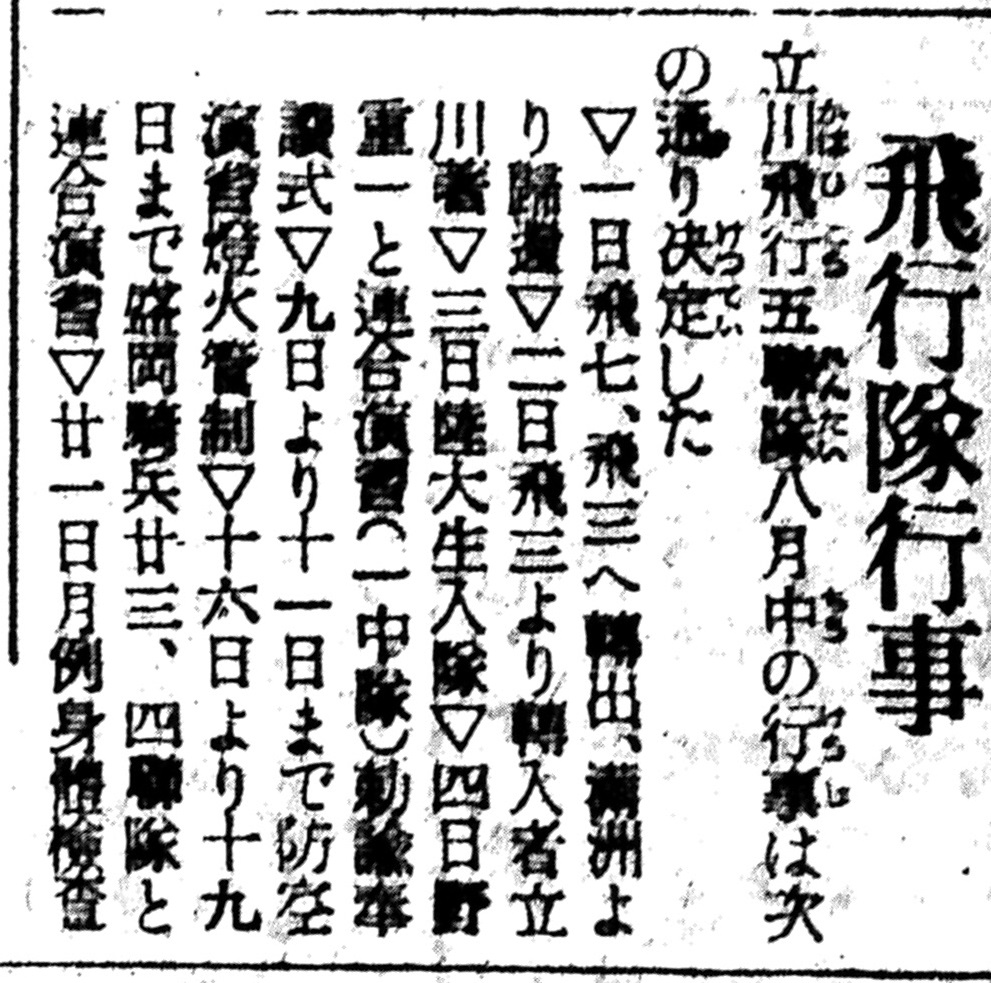 飛行隊行事
立川飛行五聯隊八月中の行事は次
の通り決定した
▽一日飛七、飛三へ轉出、滿洲よ
り歸還▽二日飛三より轉入者立
川著▽三日陸大生入隊▽四日野
重一と連合演習(一中隊)勅諭奉
讀式▽九日より十一日まで防空
演習燈火管制▽十六日より十九
日まで盛岡騎兵廿三、四聯隊と
連合演習▽廿一日月例身體檢査